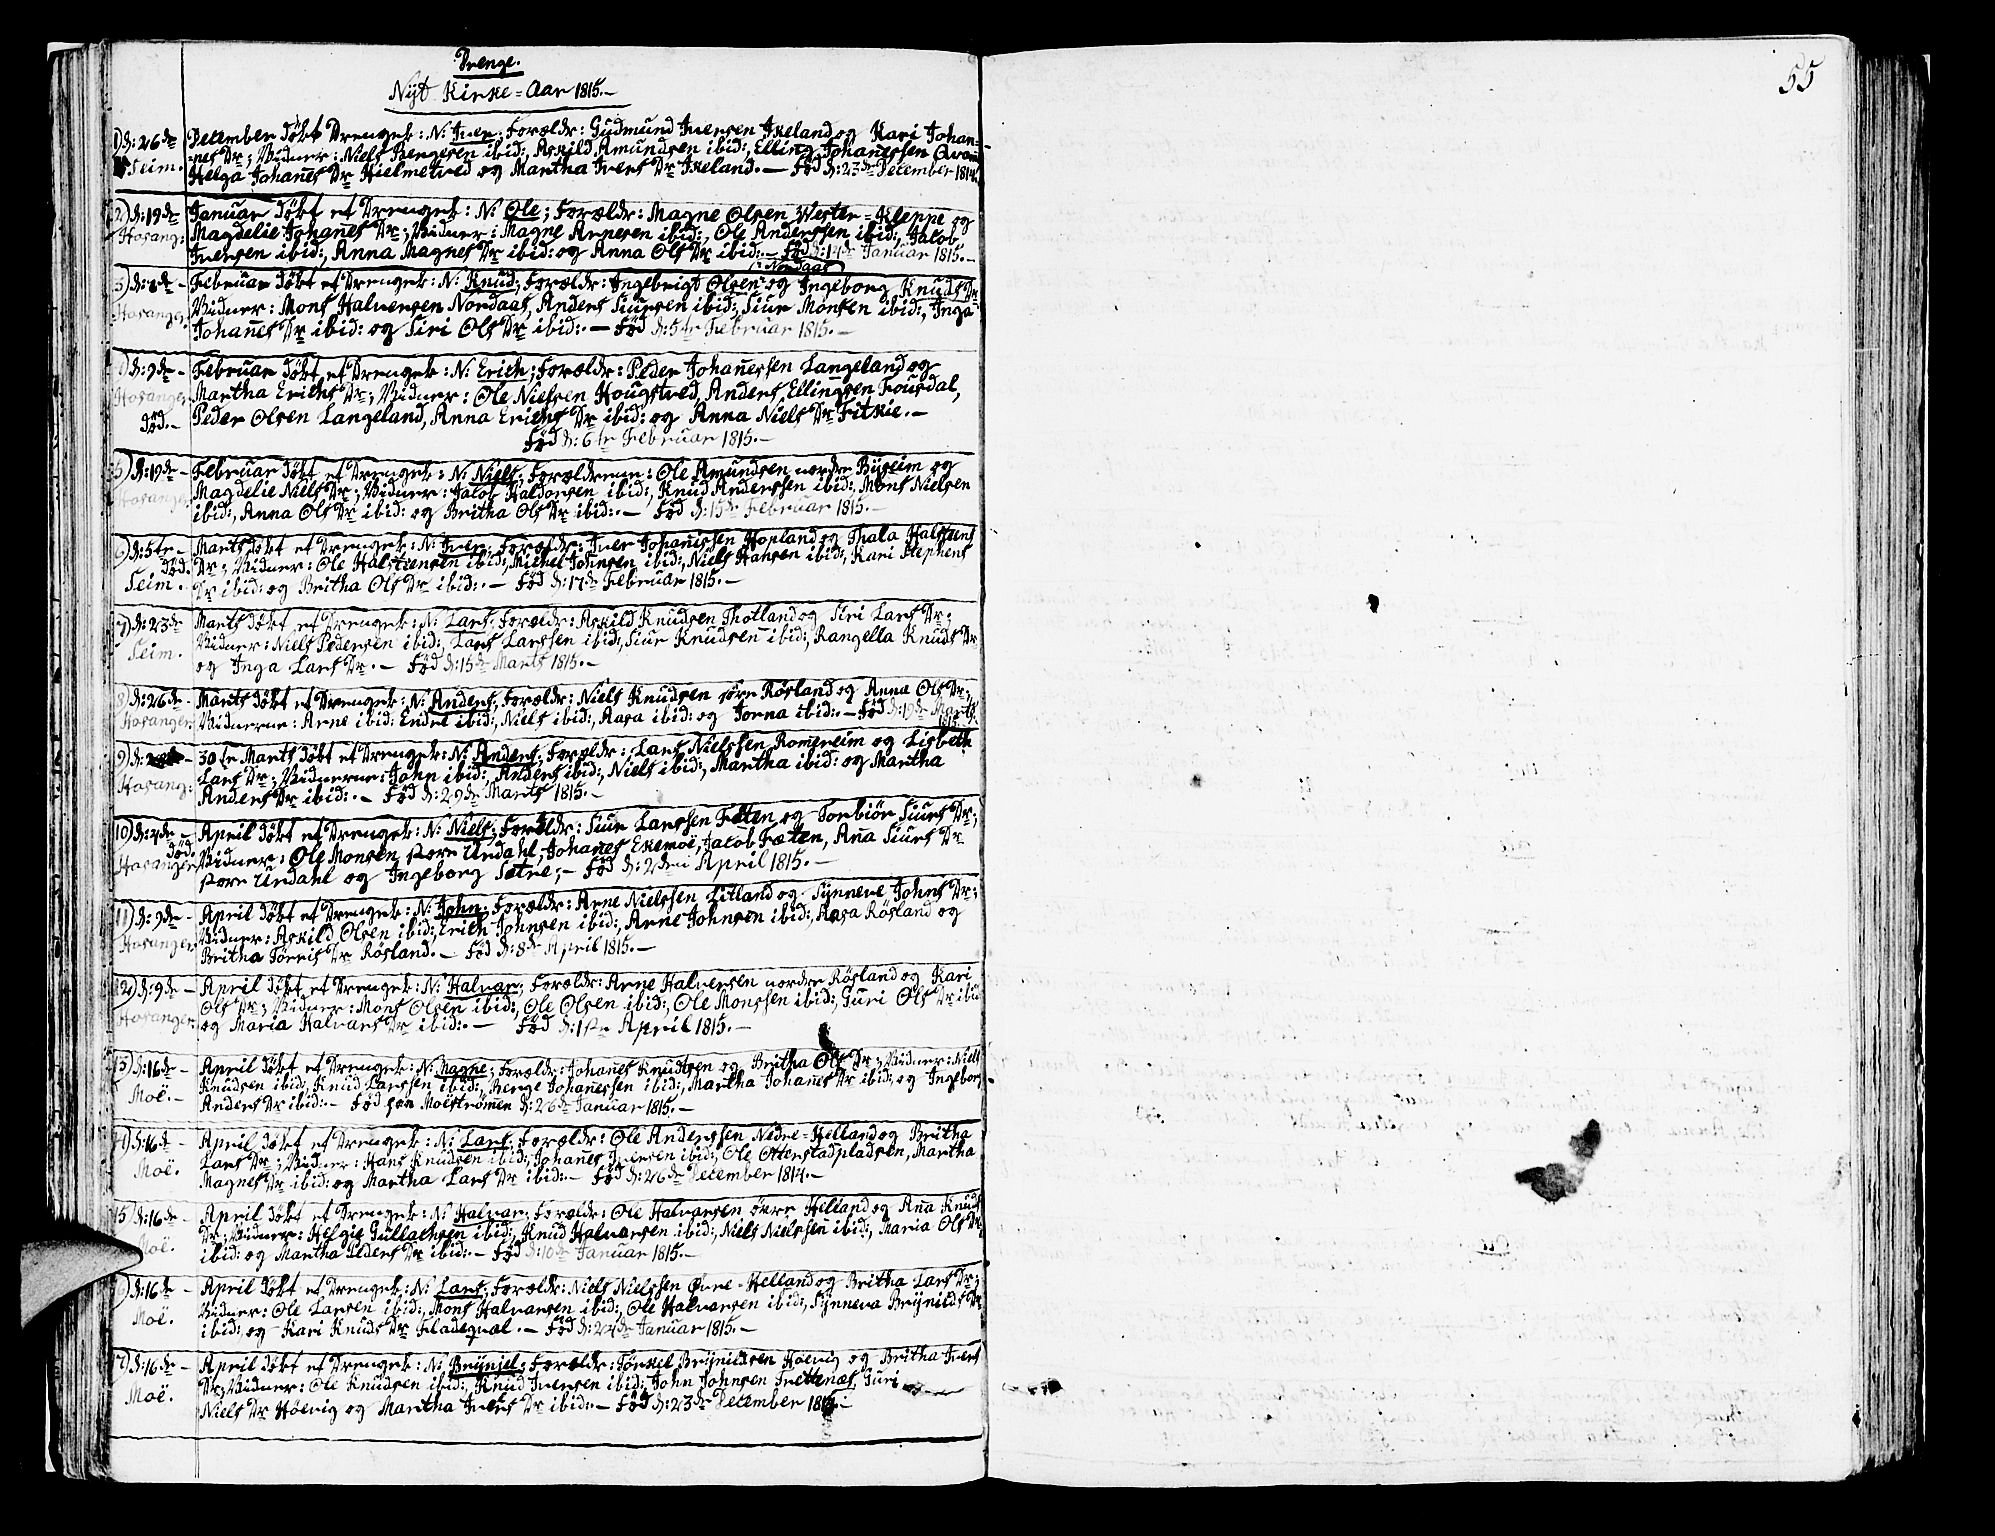 Drenge.
Nyt Kirke=Aar 1815.-
55
1) d: 26de December döbt Drengeb: N: Iver; Forældr: Gudmund Iversen Ikeland og Kari Johan-
Seim. nes Dr; Vidner: Niels Bergesen ibid:, Askild Amundsen ibid:, Elling Johanessen Qvam
Helga Johanes Dr Hielmetved og Martha Ivers Dr Ikeland.- Föd d: 23de December 1814.
2) d: 19de Januar döbt et Drengeb: N: Ole; Forældr: Magne Olsen Wester=Kleppe og
Hosang: Magdelie Johanes Dr; Vidner: Magne Arnesen ibid:, Ole Anderssen ibid:, Jacob
Iversen ibid:, Anna Magnes Dr ibid: og Anna Ols Dr ibid:.- Föd d: 14de Januar 1815.-
Nordaas
3) d: 8de - Februar döbt et Drengeb: N: Knud; Forældr: Ingebrigt Olsen og Ingeborg Knuds Dr
Hosanger. Vidner: Mons Halvorsen Nordaas, Anders Siursen ibid:, Siur Monsen ibid:, Inga
Johanes Dr ibid: og Siri Ols Dr ibid:.- Föd d: 5te Februar 1815.-
d: 9de - Februar döbt et Drengeb: N: Erich; Forældr: Peder Johanessen Langeland og
Hosanger. Martha Erichs Dr; Vidner: Ole Nielsen Hougstved, Anders Ellingsen Fousdal,
död.- Peder Olsen Langeland, Anna Erichs Dr ibid: og Anna Niels Dr Fitkie.-
Föd d: 6te Februar 1815.-
5) d: 19de - Februar döbt et Drengeb: N: Niels; Forældrene: Ole Amundsen nordre Byseim og
Hosanger. Magdelie Niels Dr; Vidner: Jacob Haldorsen ibid:, Knud Anderssen ibid:, Mons Nielsen
ibid:, Anna Ols Dr ibid: og Britha Ols Dr ibid:.- Föd d: 15de Februar 1815.-
6) d: 5te - Marts döbt et Drengeb: N: Iver; Forældr: Iver Johanessen Hopland og Thala Halsteens
död. Dr; Vidner: Ole Halsteensen ibid:, Michel Johnsen ibid:, Niels Hansen ibid:, Kari Stephens
Seim. Dr ibid: og Britha Ols Dr ibid:.- Föd d: 17de Februar 1815.-
7) d: 23de Marts döbt et Drengeb: N: Lars; Forældr: Askild Knudsen Thotland og Siri Lars Dr;
Seim. Vidner: Niels Pedersen ibid:, Lars Larssen ibid:, Siur Knudsen ibid:, Rangella Knuds Dr
og Inga Lars Dr.- Föd d: 15de Marts 1815.-
8) d: 26de - Marts döbt et Drengeb: N: Anders; Forældr: Niels Knudsen söre Rösland og Anna Ols Dr;
Hosanger. Vidnerne: Arne ibid: Endre ibid:, Niels ibid:, Aasa ibid: og Jorna ibid:.- Föd d: 19de Marts
1815.-
9) d: - 30te Marts döbt et Drengeb: N: Anders; Forældr: Lars Nielssen Romereim og Lisbeth
Hosang: Lars Dr; Vidnerne: John ibid:, Anders ibid:, Niels ibid:, Martha ibid: og Martha
Anders Dr ibid:.- Föd d: 29de Marts 1815.-
10) d: 4de - April döbt et Drengeb: N: Niels; Forældr: Siur Larssen Fæten og Torbiör Siurs Dr;
död. Vidner: Ole Monsen store Urdahl, Johanes Ekemoë, Jacob Fæten, Ana Siurs Dr
Hosanger. store Urdahl og Ingeborg Sætre;- Föd d: 2den April 1815.-
11) d: 9de - April döbt et Drengeb: N: John; Forældr: Arne Nielssen Litland og Synneve Johns Dr;
Hosanger. Vidner: Askild Olsen ibid:, Erich Johnsen ibid:, Arne Johnsen ibid:, Aasa Rösland og
Britha Törris Dr Rösland.- Föd d: 8de April 1815.-
12) d: 9de - April döbt et Drengeb: N: Halvor; Forældr: Arne Halversen nordre Rösland og Kari
Hosanger. Ols Dr; Vidner: Mons Olsen ibid:, Ole Olsen ibid:, Ole Monssen ibid:, Guri Ols Dr ibid
og Maria Halvars Dr ibid:.- Föd d: 1ste April 1815.-
13) d: 16de - April döbt et Drengeb: N: Magne; Forældr: Johanes Knudtsen og Britha Ols Dr; Vidner: Niels
Moë.- Knudsen ibid: Knud Larssen ibid:, Berge Johanessen ibid:, Martha Johanes Dr ibid: og Ingebor
Anders Dr ibid:.- Föd paa Moëströmen d: 26de Januar 1815.-
d: 16de - April döbt et Drengeb: N: Lars; Forældr: Ole Anderssen Nedre=Helland og Britha
Moë. Lars Dr; Vidner: Hans Knudsen ibid:, Johanes Iversen ibid:, Ole Otterstadpladsen, Martha
Magnes Dr ibid: og Martha Lars Dr ibid:.- Föd d: 26de December 1814.-
15) d: 16de - April döbt et Drengeb: N: Halvar; Forældr: Ole Halvarsen övre Helland og Ana Knuds
Moë. Dr; Vidner: Helgie Gullachsen ibid:, Knud Halvarsen ibid:, Niels Nielssen ibid:, Maria Ols Dr
ibid: og Martha Peders Dr ibid:.- Föd d: 10de Januar 1815.-
d: 16de - April döbt et Drengeb: N: Lars; Forældr: Niels Nielssen Övre=Helland og Britha Lars Dr;
Moë. Vidner: Ole Larsen ibid:, Mons Halvarsen ibid:, Ole Halvarsen ibid:, Synneva Brynilds Dr
ibid: og Kari Knuds Dr Fladeqval.- Föd d: 24de Januar 1815.-
7) d: 16de - April döbt et Drengeb: N: Brynjel; Forældr: Törkel Brynildsen Höevig og Britha Ivers
Moë. Dr; Vidner: Ole Knudsen ibid:, Knud Iversen ibid:, John Johnsen Trettenæs, Guri
Niels Dr Höevig og Martha Ivers Dr ibid:.- Föd d: 23de December 181